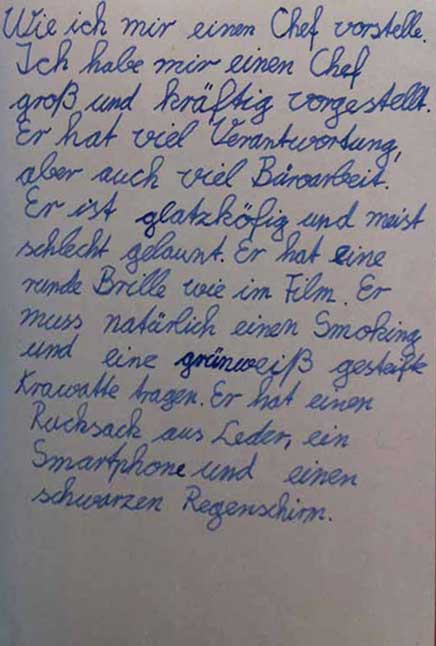 Wie ich mir einen Chef vorstelle.
Ich habe mir einen Chef
groß und kräftig vorgestellt.
Er hat viel Verantwortung,
aber auch viel Büroarbeit.
Er ist glatzköfig und meist
schlecht gelaunt. Er hat eine
runde Brille wie im Film. Er
muss natürlich einen Smoking
und eine grünweiß gesteifte
Krawatte tragen. Er hat einen
Rucksack aus Leder, ein
Smartphone und einen
schwarzen Regenschirm.